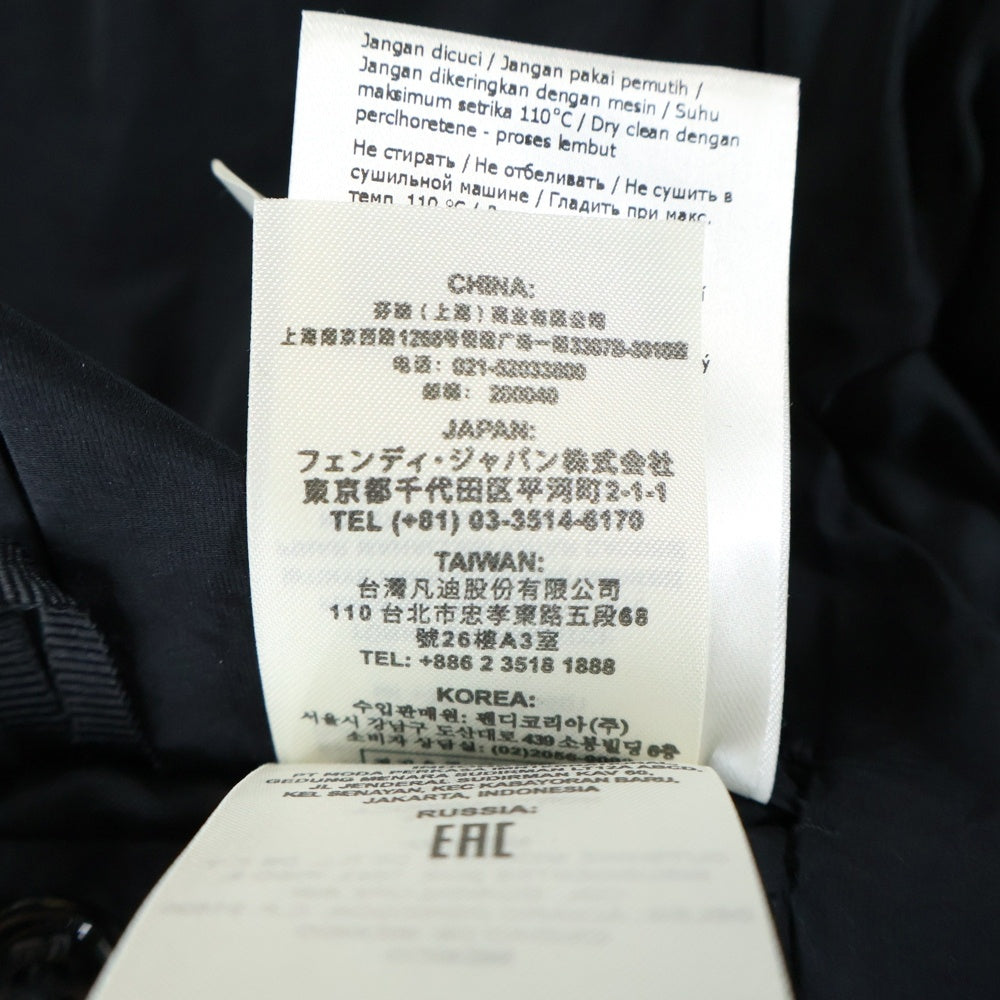 Jangan dicuci / Jangan pakai pemutih /
Jangan dikeringkan dengan mesin / Suhu
maksimum setrika 110°C / Dry clean dengan
perclhoretene - proses lembut
Не стирать / Не отбеливать / Не сушить в
сушильной машине / Гладить при макс.
темп. 110 °C /
CHINA:
芬迪（上海）商业有限公司
上海南京西路1266号恒隆广场一期
电话： 021-52033800
邮编： 200040
JAPAN:
フェンディ・ジャパン株式会社
東京都千代田区平河町2-1-1
TEL (+81) 03-3514-6170
TAIWAN:
台灣凡迪股份有限公司
110 台北市忠孝東路五段68
號26樓A3室
TEL: +886 2 3518 1888
KOREA:
수입판매원: 펜디코리아(주)
서울시 강남구 도산대로 439 소봉빌딩 6층
소비자 상담실: (02)2056-
PT MODA
GEDUNG MENARA SUDIRMAN
JL JENDERAL SUDIRMAN KAV 60,
KEL SENAYAN, KEC KABAYORAN BARU,
JAKARTA, INDONESIA
RUSSIA:
EAC